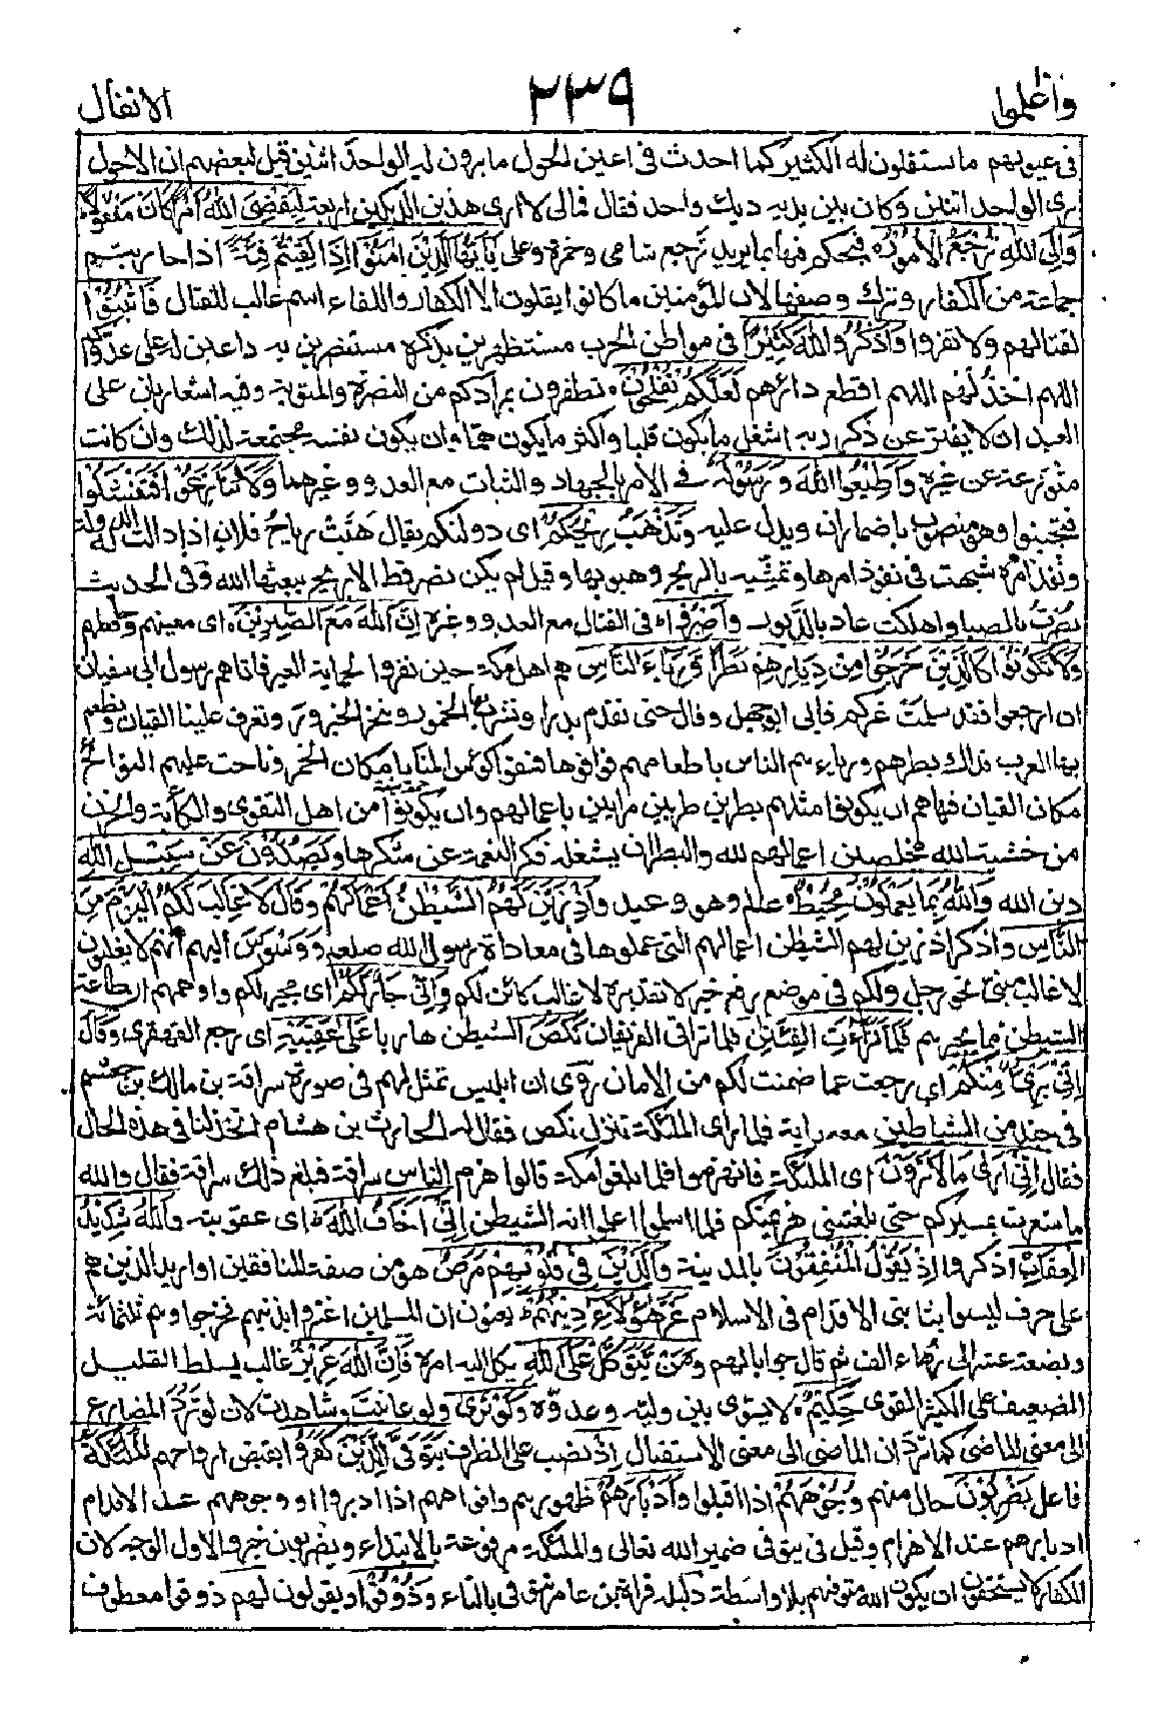 واعلموا
٢٣٩
الانفال
فى عيونهم ما يستقلون له الكثير كما احدث فى اعين الحول ما يرون له الواحد اثنين قيل لبعضهم ان الاحول
يرى الواحد اثنين وكان بين يديه ديك واحد فقال فمالى لا ارى هذين الديكين اربعة لِيَقْضِيَ اللهُ اَمْرًا كَانَ مَفْعُولًا
وَاِلَى اللهِ تُرْجَعُ الْاُمُوْرُ فيحكم فيها بما يريد ترجع شامى وحمزة وعلى يٰاَيُّهَا الَّذِيْنَ اٰمَنُوْا اِذَا لَقِيْتُمْ فِئَةً اذا حاربتم
جماعة من الكفار وترك وصفها لان المؤمنين ما كانوا يلقون الا الكفار واللقاء اسم غالب للقتال فَاثْبُتُوْا
لقتالهم ولا تفروا وَاذْكُرُوا اللهَ كَثِيْرًا فى مواطن الحرب مستظهرين بذكره مستنصرين به داعين له على عدوكم
اللهم اخذلهم اللهم اقطع دابرهم لَعَلَّكُمْ تُفْلِحُوْنَ تظفرون بمرادكم من النصرة والمثوبة وفيه اشعار بان على
العبد ان لا يفتر عن ذكر ربه اشغل ما يكون قلبا واكثر ما يكون هما وان يكون نفسه مجتمعة لذلك وان كانت
متوزعة عن غيره وَاَطِيْعُوا اللهَ وَرَسُوْلَهُ فى الامر بالجهاد والثبات مع العدو وغيرهما وَلَا تَنَازَعُوْا فَتَفْشَلُوْا
فتجبنوا وهو منصوب باضمار ان ويدل عليه وَتَذْهَبَ رِيْحُكُمْ اى دولتكم يقال هَبَّتْ رياحُ فلان اذا دالت له الدولة
ونفذ امره شبهت فى نفوذ امرها وتمشيه بالريح وهبوبها وقيل لم يكن نصر قط الا بريح يبعثها الله وفى الحديث
نُصِرْتُ بالصبا واهلكت عاد بالدبور وَاصْبِرُوْا فى القتال مع العدو وغيره اِنَّ اللهَ مَعَ الصّٰبِرِيْنَ اى معينهم وحافظهم
وَلَا تَكُوْنُوْا كَالَّذِيْنَ خَرَجُوْا مِنْ دِيَارِهِمْ بَطَرًا وَّرِئَاءَ النَّاسِ هم اهل مكة حين نفروا لحماية العير فاتاهم رسول ابى سفيان
ان ارجعوا فقد سلمت عيركم فابى ابو جهل وقال حتى نقدم بدرا ونشرب بها الخمور وننحر الجزور وتعزف علينا القيان ونطعم
بها العرب فذلك بطرهم ورياءهم الناس باطعامهم فوافوها فسقوا كؤس المنايا مكان الخمر وناحت عليهم النوائح
مكان القيان فنهاهم ان يكونوا مثلهم بطرين طربين مرايين باعمالهم وان يكونوا من اهل التقوى والكآبة والحزن
من خشية الله مخلصين اعمالهم لله والبطر ان يشغله كثرة النعمة عن شكرها وَيَصُدُّوْنَ عَنْ سَبِيْلِ اللهِ
دين الله وَاللهُ بِمَا يَعْمَلُوْنَ مُحِيْطٌ عالم وهو وعيد وَاِذْ زَيَّنَ لَهُمُ الشَّيْطٰنُ اَعْمَالَهُمْ وَقَالَ لَا غَالِبَ لَكُمُ الْيَوْمَ مِنَ
النَّاسِ واذكر اذ زين لهم الشيطن اعمالهم التى عملوها فى معاداة رسول الله صلعم ووسوس اليهم انهم لا يغلبون
لا غالب مبنى نحو رجل ولكم فى موضع رفع خبر لا تقديره لا غالب كائن لكم وَاِنِّيْ جَارٌ لَّكُمْ اى مجير لكم واوهمهم ان طاعة
الشيطن مما يجيرهم فَلَمَّا تَرَاءَتِ الْفِئَتٰنِ فلما تراقى الفريقان نَكَصَ الشيطن هاربا عَلٰى عَقِبَيْهِ اى رجع القهقرى وَقَالَ
اِنِّيْ بَرِيْءٌ مِّنْكُمْ اى رجعت عما ضمنت لكم من الامان روى ان ابليس تمثل لهم فى صورة سراقة بن مالك بن جعشم
فى جند من الشياطين معه راية فلما راى الملئكة تنزل نكص فقال له الحارث بن هشام اتخذلنا فى هذه الحال
فقال اِنِّيْ اَرٰى مَا لَا تَرَوْنَ اى الملئكة فانهزموا فلما بلغوا مكة قالوا هزم الناس سراقة فبلغ ذلك سراقة فقال والله
ما شعرت بمسيركم حتى بلغتنى هزيمتكم فلما اسلموا علموا انه الشيطن اِنِّيْ اَخَافُ اللهَ اى عقوبته وَاللهُ شَدِيْدُ
الْعِقَابِ اذكروا اِذْ يَقُوْلُ الْمُنٰفِقُوْنَ بالمدينة وَالَّذِيْنَ فِيْ قُلُوْبِهِمْ مَّرَضٌ هو من صفة المنافقين او اريد الذين هم
على حرف ليسوا بثابتى الاقدام فى الاسلام غَرَّ هٰؤُلَاءِ دِيْنُهُمْ يعنون ان المسلمين اغتروا بدينهم فخرجوا وهم ثلثمائة
وبضعة عشر الى زهاء الف ثم قال جوابا لهم وَمَنْ يَّتَوَكَّلْ عَلَى اللهِ يكل اليه امره فَاِنَّ اللهَ عَزِيْزٌ غالب يسلط القليل
الضعيف على الكثير القوى حَكِيْمٌ لا يسوى بين وليه وعدوه وَلَوْ تَرٰى ولو عاينت وشاهدت لان لو ترد المضارع
الى معنى الماضى كما ترد ان الماضى الى معنى الاستقبال اِذْ نصب على الظرف يَتَوَفَّى الَّذِيْنَ كَفَرُوْا بقبض ارواحهم الْمَلٰئِكَةُ
فاعل يَضْرِبُوْنَ حال منهم وُجُوْهَهُمْ اذا اقبلوا وَاَدْبَارَهُمْ ظهورهم واقفاهم اذا ادبروا او وجوههم عند الاقدام
ادبارهم عند الانهزام وقيل فى يتوفى ضمير الله تعالى والملئكة مرفوعة بالابتداء ويضربون خبر والاول الوجه لان
الكفار لا يستحقون ان يكون الله متوفيهم بلا واسطة دليله قراءة بن عامر تتوفى بالتاء وَذُوْقُوْا ويقولون لهم ذوقوا معطوف